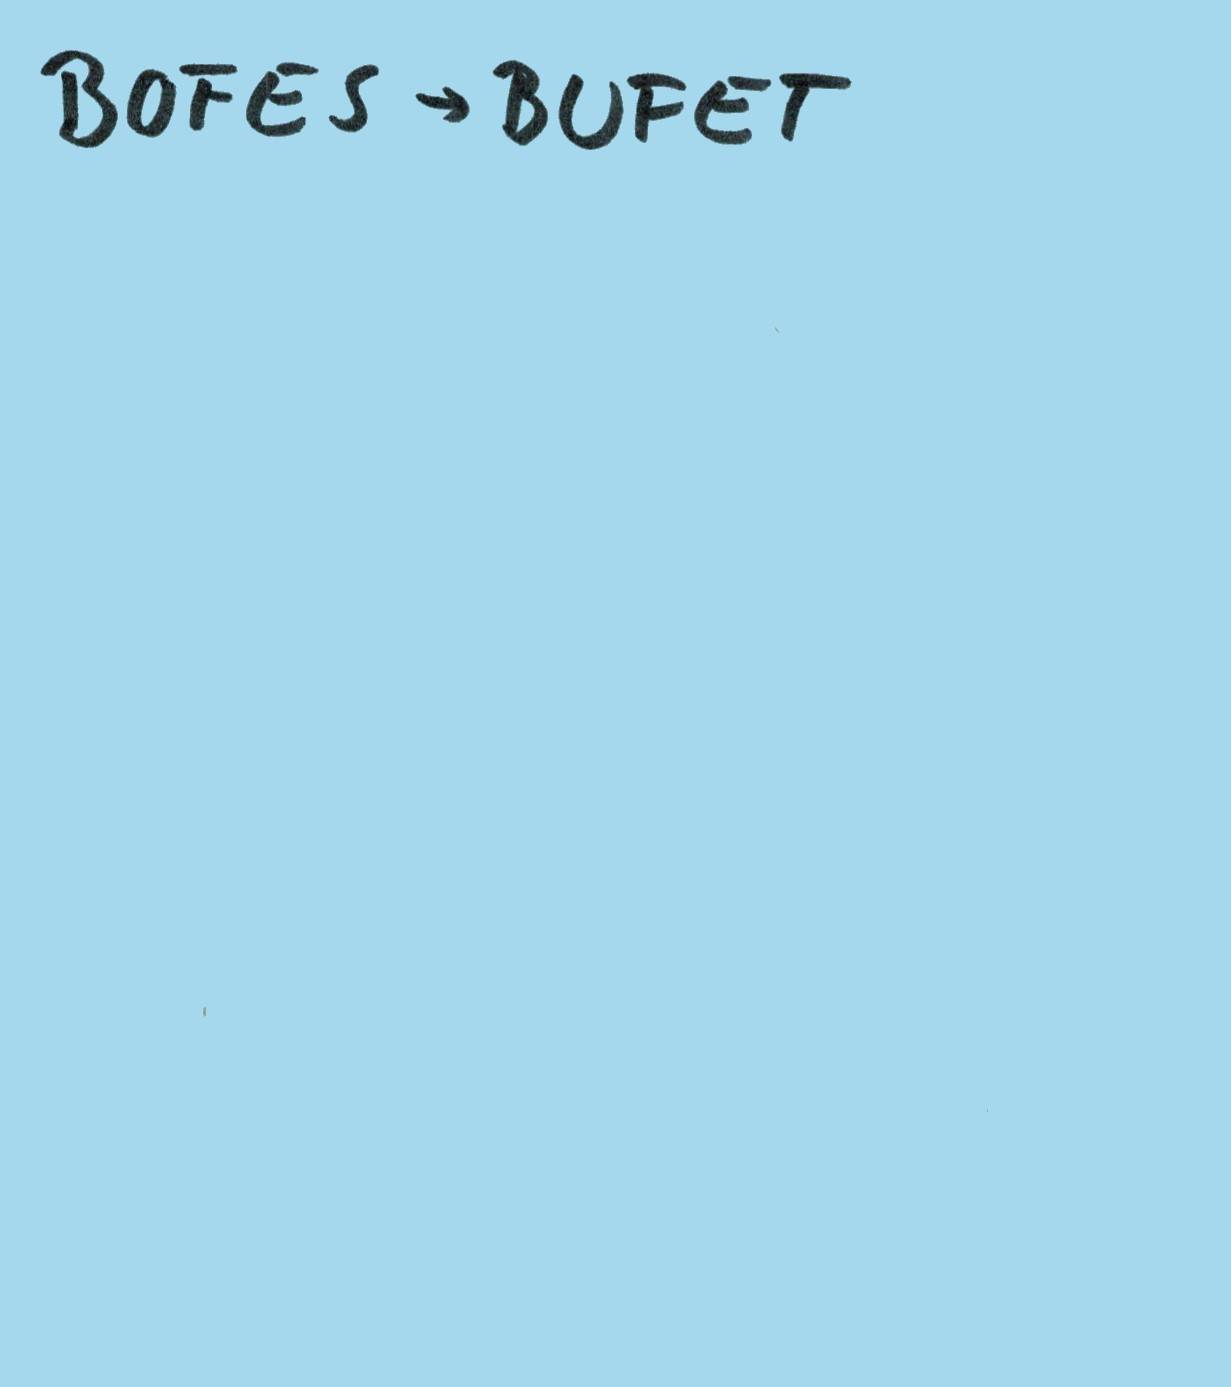 BOFES → BUFET